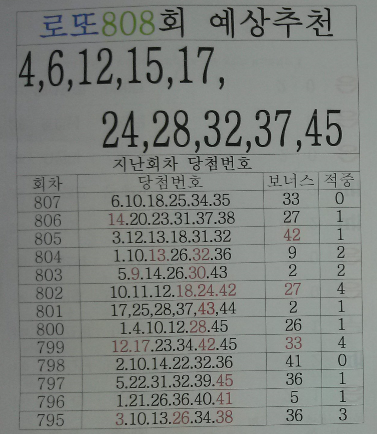 로또808회 예상추천
4,6,12,15,17,
24,28,32,37,45
지난회차 당첨번호
회차 당첨번호 보너스 적중
807 6.10.18.25.34.35 33 0
806 14.20.23.31.37.38 27 1
805 3.12.13.18.31.32 42 1
804 1.10.13.26.32.36 9 2
803 5.9.14.26.30.43 2 2
802 10.11.12.18.24.42 27 4
801 17,25,28,37,43,44 2 1
800 1.4.10.12.28.45 26 1
799 12.17.23.34.42.45 33 4
798 2.10.14.22.32.36 41 0
797 5.22.31.32.39.45 36 1
796 1.21.26.36.40.41 5 1
795 3.10.13.26.34.38 36 3